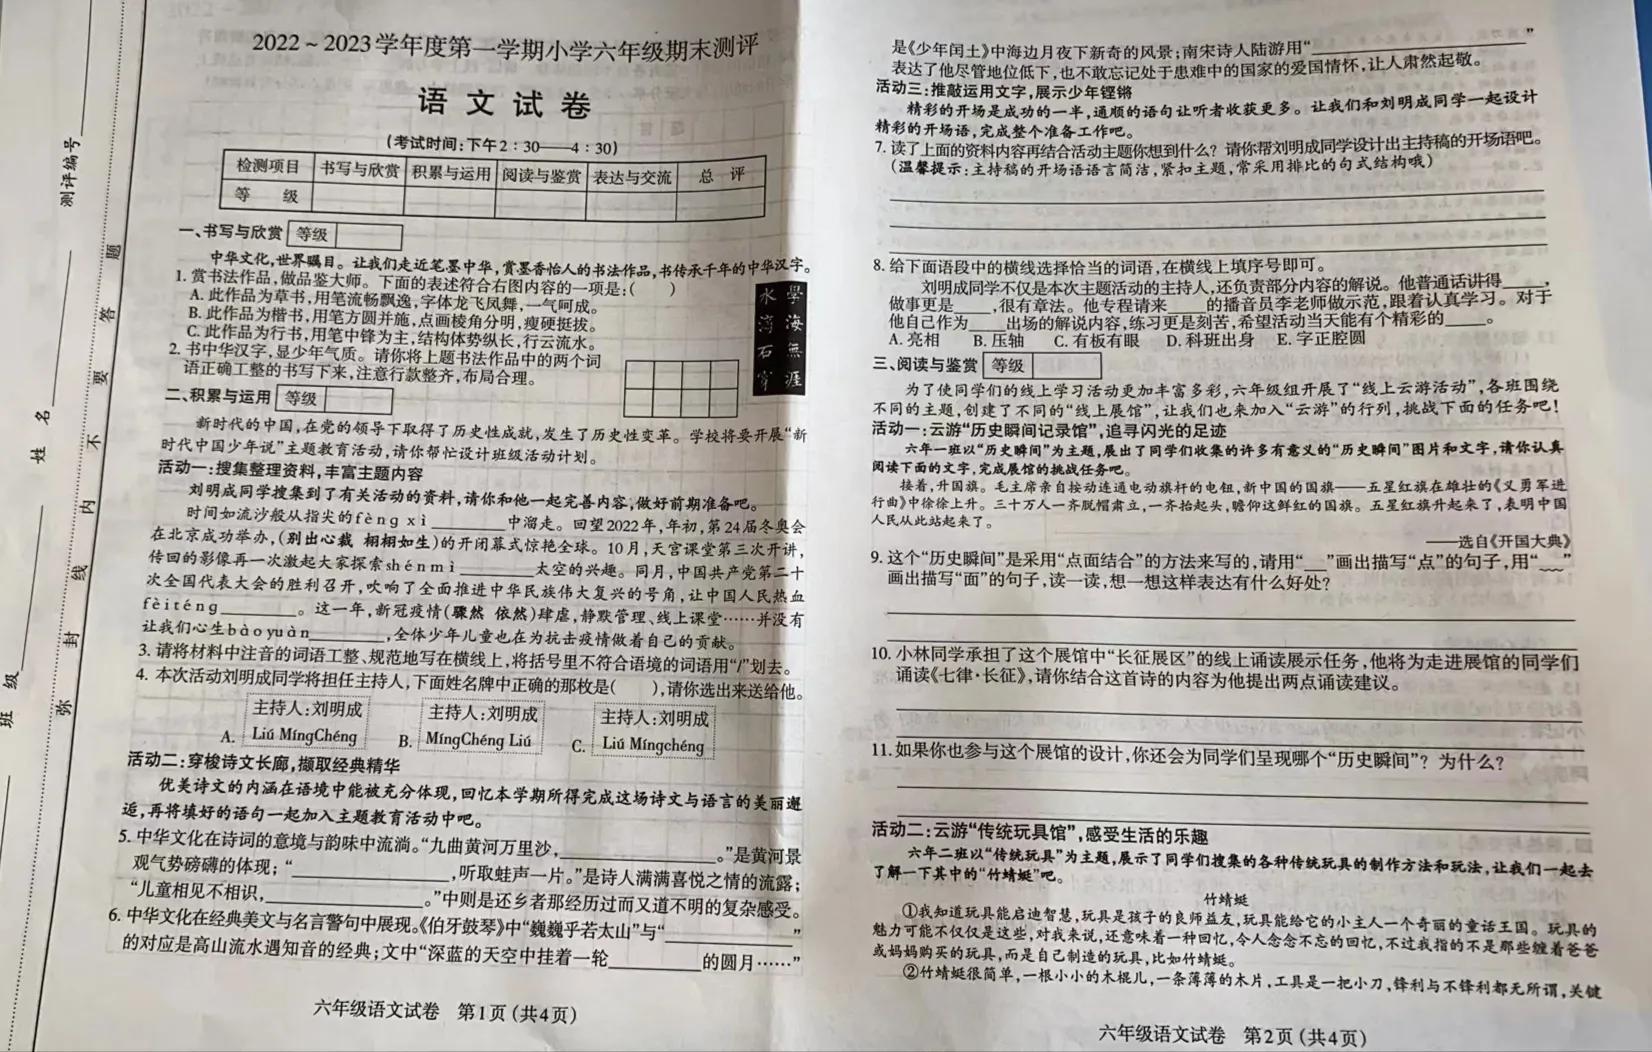 测评编号
姓 名
班 级
弥 封 线 内 不 要 答 题
2022～2023学年度第一学期小学六年级期末测评
语文试卷
(考试时间:下午2：30——4：30)
检测项目 书写与欣赏 积累与运用 阅读与鉴赏 表达与交流 总 评
等 级
一、书写与欣赏 等级
中华文化,世界瞩目。让我们走近笔墨中华,赏墨香怡人的书法作品,书传承千年的中华汉字。
1. 赏书法作品,做品鉴大师。下面的表述符合右图内容的一项是:( )
A. 此作品为草书,用笔流畅飘逸,字体龙飞凤舞,一气呵成。
B. 此作品为楷书,用笔方圆并施,点画棱角分明,瘦硬挺拔。
C. 此作品为行书,用笔中锋为主,结构体势纵长,行云流水。
學海無涯
水滴石穿
2. 书中华汉字,显少年气质。请你将上题书法作品中的两个词
语正确工整的书写下来,注意行款整齐,布局合理。
二、积累与运用 等级
新时代的中国,在党的领导下取得了历史性成就,发生了历史性变革。学校将要开展“新
时代中国少年说”主题教育活动,请你帮忙设计班级活动计划。
活动一:搜集整理资料,丰富主题内容
刘明成同学搜集到了有关活动的资料,请你和他一起完善内容,做好前期准备吧。
时间如流沙般从指尖的fèng xì________中溜走。回望2022年,年初,第24届冬奥会
在北京成功举办,(别出心裁 栩栩如生)的开闭幕式惊艳全球。10月,天宫课堂第三次开讲,
传回的影像再一次激起大家探索shénmì________太空的兴趣。同月,中国共产党第二十
次全国代表大会的胜利召开,吹响了全面推进中华民族伟大复兴的号角,让中国人民热血
fèiténg________。这一年,新冠疫情(骤然 依然)肆虐,静默管理、线上课堂……并没有
让我们心生bàoyuàn________,全体少年儿童也在为抗击疫情做着自己的贡献。
3. 请将材料中注音的词语工整、规范地写在横线上,将括号里不符合语境的词语用“/”划去。
4. 本次活动刘明成同学将担任主持人,下面姓名牌中正确的那枚是( ),请你选出来送给他。
A. 主持人:刘明成 B. 主持人:刘明成 C. 主持人:刘明成
Liú MíngChéng MíngChéng Liú Liú Míngchéng
活动二:穿梭诗文长廊,撷取经典精华
优美诗文的内涵在语境中能被充分体现,回忆本学期所得完成这场诗文与语言的美丽邂
逅,再将填好的语句一起加入主题教育活动中吧。
5. 中华文化在诗词的意境与韵味中流淌。“九曲黄河万里沙,________________。”是黄河景
观气势磅礴的体现;“________________,听取蛙声一片。”是诗人满满喜悦之情的流露;
“儿童相见不相识,________________。”中则是还乡者那经历过而又道不明的复杂感受。
6. 中华文化在经典美文与名言警句中展现。《伯牙鼓琴》中“巍巍乎若太山”与“______________”
的对应是高山流水遇知音的经典;文中“深蓝的天空中挂着一轮__________的圆月……”
六年级语文试卷 第1页(共4页)
是《少年闰土》中海边月夜下新奇的风景;南宋诗人陆游用“______________________”
表达了他尽管地位低下,也不敢忘记处于患难中的国家的爱国情怀,让人肃然起敬。
活动三:推敲运用文字,展示少年铿锵
精彩的开场是成功的一半,通顺的语句让听者收获更多。让我们和刘明成同学一起设计
精彩的开场语,完成整个准备工作吧。
7. 读了上面的资料内容再结合活动主题你想到什么？请你帮刘明成同学设计出主持稿的开场语吧。
(温馨提示:主持稿的开场语语言简洁,紧扣主题,常采用排比的句式结构哦)
8. 给下面语段中的横线选择恰当的词语,在横线上填序号即可。
刘明成同学不仅是本次主题活动的主持人,还负责部分内容的解说。他普通话讲得____,
做事更是____,很有章法。他专程请来____的播音员李老师做示范,跟着认真学习。对于
他自己作为____出场的解说内容,练习更是刻苦,希望活动当天能有个精彩的____。
A. 亮相 B. 压轴 C. 有板有眼 D. 科班出身 E. 字正腔圆
三、阅读与鉴赏 等级
为了使同学们的线上学习活动更加丰富多彩,六年级组开展了“线上云游活动”,各班围绕
不同的主题,创建了不同的“线上展馆”,让我们也来加入“云游”的行列,挑战下面的任务吧！
活动一:云游“历史瞬间记录馆”,追寻闪光的足迹
六年一班以“历史瞬间”为主题,展出了同学们收集的许多有意义的“历史瞬间”图片和文字,请你认真
阅读下面的文字,完成展馆的挑战任务吧。
接着,升国旗。毛主席亲自按动连通电动旗杆的电钮,新中国的国旗——五星红旗在雄壮的《义勇军进
行曲》中徐徐上升。三十万人一齐脱帽肃立,一齐抬起头,瞻仰这鲜红的国旗。五星红旗升起来了,表明中国
人民从此站起来了。
——选自《开国大典》
9. 这个“历史瞬间”是采用“点面结合”的方法来写的,请用“___”画出描写“点”的句子,用“﹏﹏”
画出描写“面”的句子,读一读,想一想这样表达有什么好处?
10. 小林同学承担了这个展馆中“长征展区”的线上诵读展示任务,他将为走进展馆的同学们
诵读《七律·长征》,请你结合这首诗的内容为他提出两点诵读建议。
11. 如果你也参与这个展馆的设计,你还会为同学们呈现哪个“历史瞬间”？为什么?
活动二:云游“传统玩具馆”,感受生活的乐趣
六年二班以“传统玩具”为主题,展示了同学们搜集的各种传统玩具的制作方法和玩法,让我们一起去
了解一下其中的“竹蜻蜓”吧。
竹蜻蜓
①我知道玩具能启迪智慧,玩具是孩子的良师益友,玩具能给它的小主人一个奇丽的童话王国。玩具的
魅力可能不仅仅是这些,对我来说,还意味着一种回忆,令人念念不忘的回忆,不过我指的不是那些缠着爸爸
或妈妈购买的玩具,而是自己制造的玩具,比如竹蜻蜓。
②竹蜻蜓很简单,一根小小的木棍儿,一条薄薄的木片,工具是一把小刀,锋利与不锋利都无所谓,关键
六年级语文试卷 第2页(共4页)